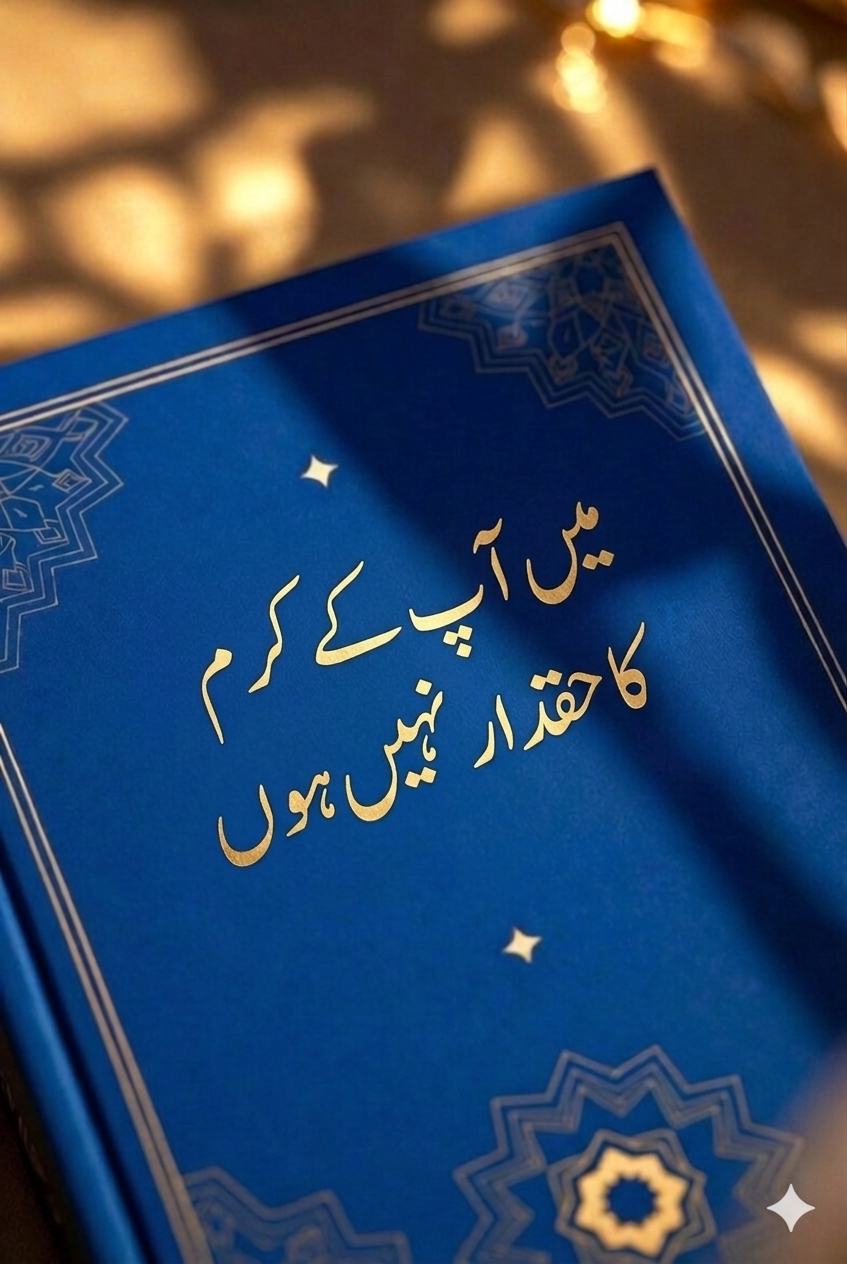 میں آپ کے کرم
کا حقدار نہیں ہوں